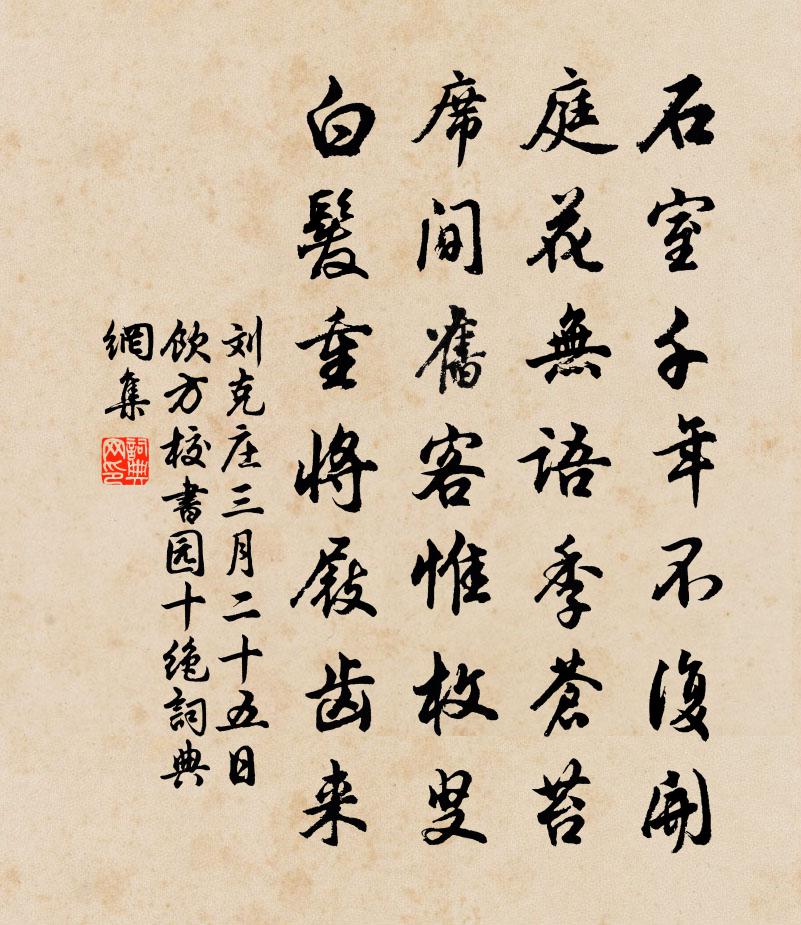 石室千年不復開
庭花無語委蒼苔
席間舊客惟枚叟
白髮重將屐齿来
刘克庄三月二十五日
飲方校書园十絶詞典
網集
詞典网印